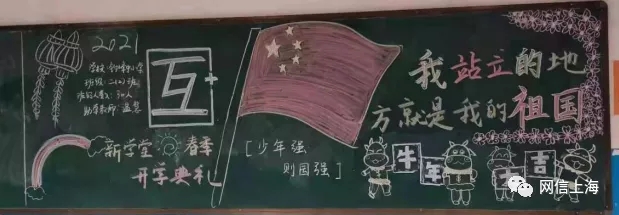 2021
学校:
班级:2102班
班级人数:30人
互
新学堂 春季
开学典礼
[少年强
则国强]
我站立的地
方就是我的祖国
牛年大吉
网信上海